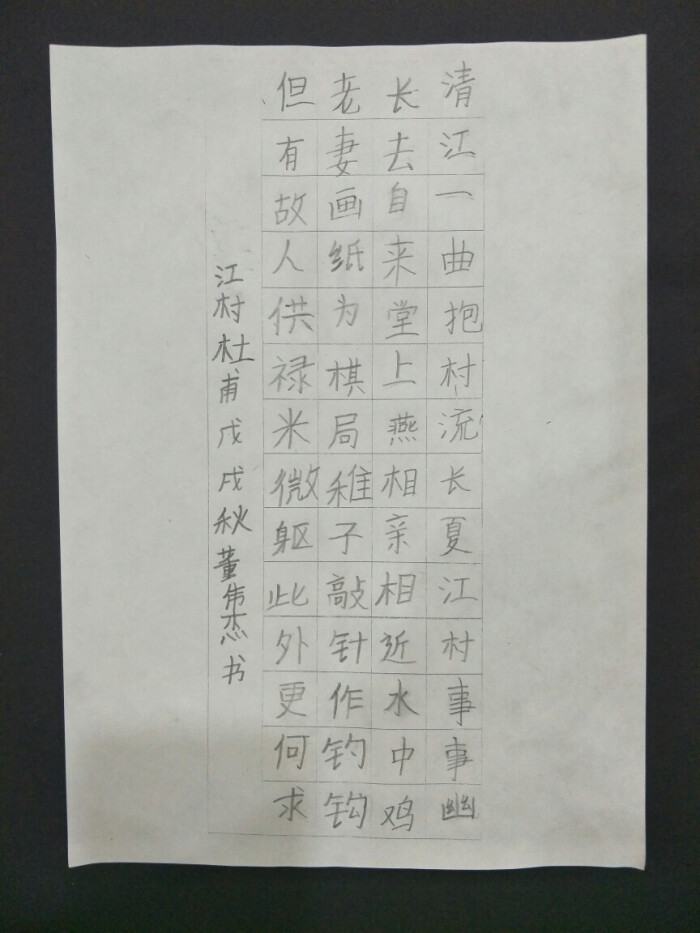 清江一曲抱村流长夏江村事事幽
长去自来堂上燕相亲相近水中鸡
老妻画纸为棋局稚子敲针作钓钩
但有故人供禄米微躯此外更何求
江村杜甫戊戌秋董伟杰书